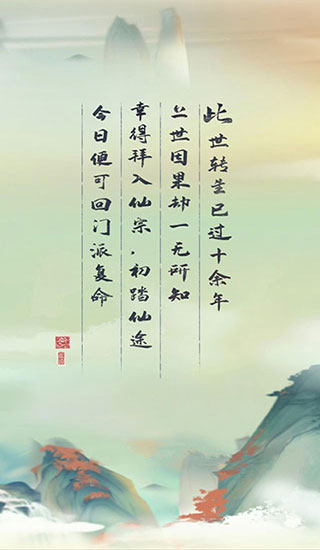 此世转生已过十余年
上世因果却一无所知
幸得拜入仙宗，初踏仙途
今日便可回门派复命